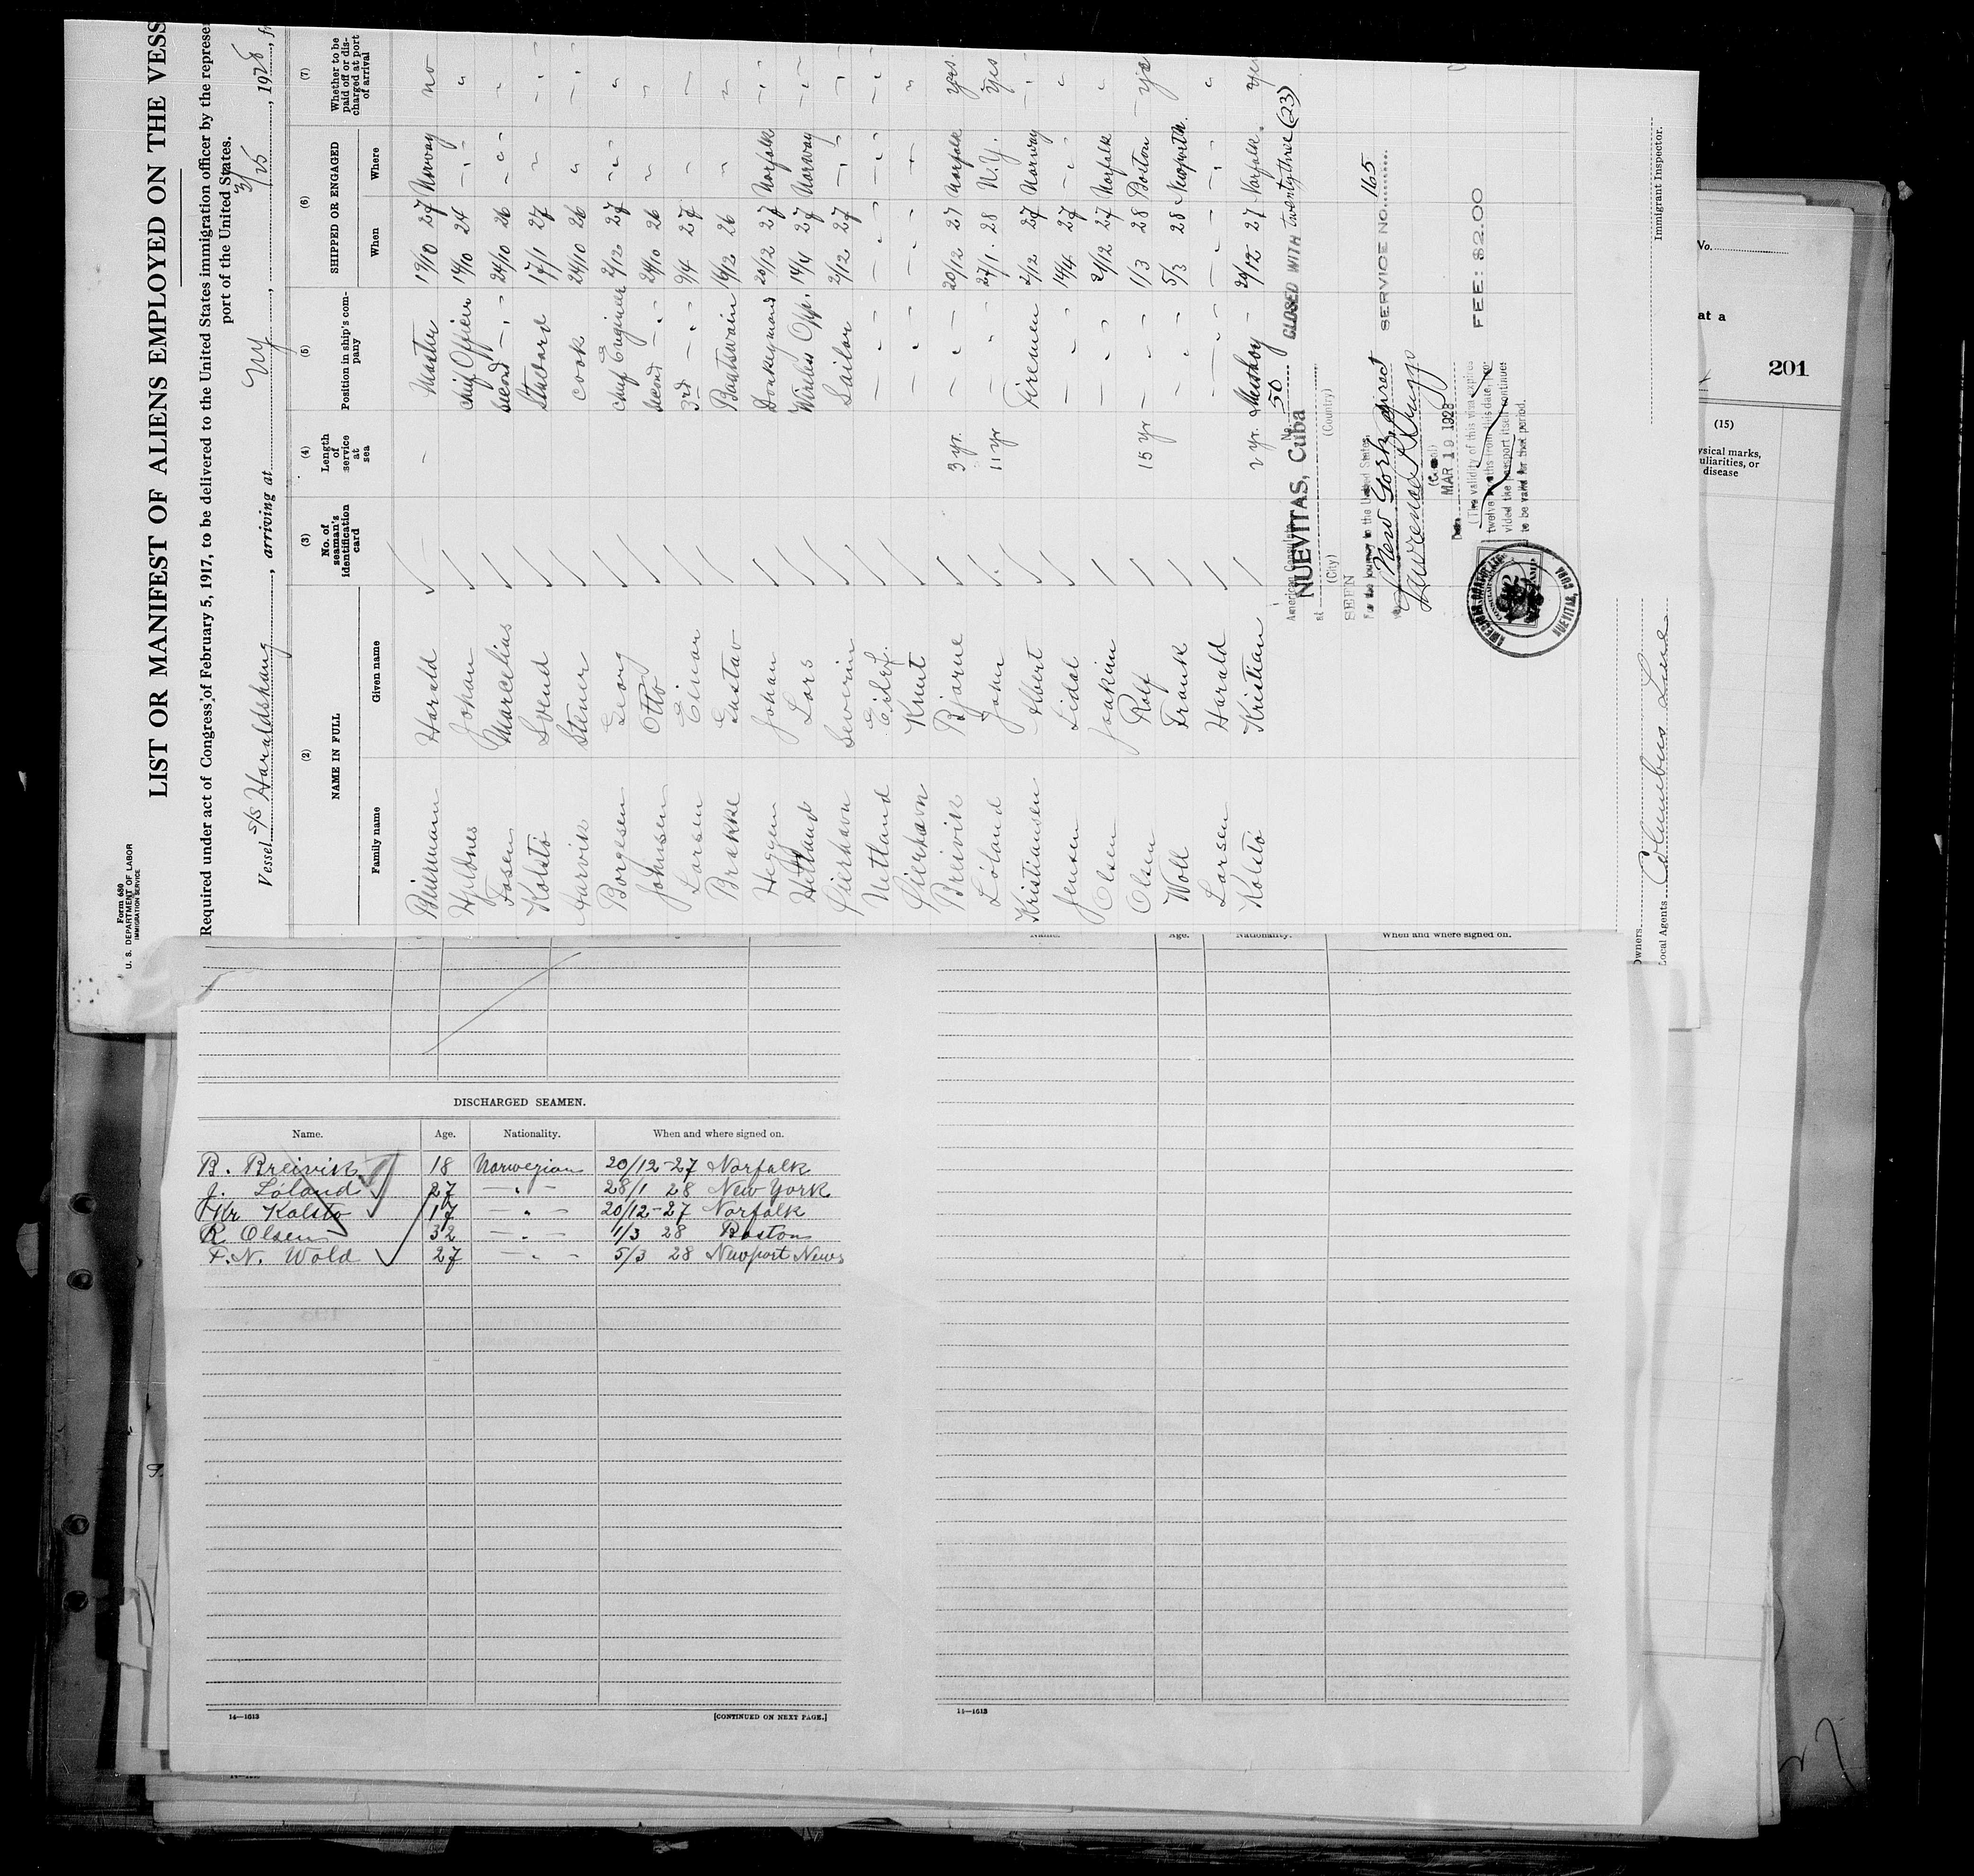 Form 680
U. S. DEPARTMENT OF LABOR
IMMIGRATION SERVICE
LIST OR MANIFEST OF ALIENS EMPLOYED ON THE VESS
Required under act of Congress of February 5, 1917, to be delivered to the United States immigration officer by the represen
port of the United States.
Vessel S/S Haraldshaug, arriving at NY, 3/25, 1928, fr
(2) (3) (4) (5) (6) (7)
NAME IN FULL
No. of seaman's identification card
Length of service at sea
Position in ship's company
SHIPPED OR ENGAGED
Whether to be paid off or discharged at port of arrival
Family name Given name When Where
Harald Master 19/10 27 Norway no
Hildnes Johan chief Officer 14/10 24 - " - "
Fosen Marcelius second - " - 24/10 26 - " - "
Kolstö Svend Steward 17/1 27 " - " -
Garvik Stener cook 24/10 26 " - " -
Borgesen Georg chief Engineer 2/12 27 - " - "
Johnsen Otto second - " - 24/10 26 " "
Larsen Einar 3rd - " - 9/4 27 - -
Brakke Gustav Baatswain 16/12 26 " "
Heggen Johan Donkeymand 20/12 27 Norfalk - " -
Hetland Lars Wireles Opp. 14/4 27 Norway - " -
Severin Sailor 2/12 27 - " - - " -
Netland Eilef. - " - - " - - " - - " -
Knut - " - - " - "
Breivik Bjarne 3 yr. - " - 20/12 27 Norfalk yes.
Löland John 11 yr - " - 27/1. 28 N.Y. yes
Kristiansen Albert Firemen 2/12 27 Norway - " -
Jensen Lidal - " - 14/4 27 - " - "
Olsen Joakim - " - 21/12 27 Norfalk "
Olsen Rolf 15 yr - " - 1/3 28 Boston - yes
Woll Frank - " - 5/3 28
Larsen Harald - " - - " - - " - "
Kolstö Kristian 2 yr. 20/12 27 Norfalk. yes
American Consulate No. 50 CLOSED WITH twentythree (23)
at NUEVITAS, Cuba
(City) (Country)
SEEN
For the journey to the United States
New York, direct SERVICE NO. 165
MAR 19 1928
(The validity of this visa expires
twelve months from this date, pro-
vided the passport itself continues
to be valid for that period.
FEE: $2.00
NUEVITAS, CUBA
Immigrant Inspector.
Owners
Local Agents Columbus Line
No.
at a
201
(15)
ysical marks,
uliarities, or
disease
Name. Age. Nationality. When and where signed on.
DISCHARGED SEAMEN.
Name. Age. Nationality. When and where signed on.
B. Breivik 18 Norwegian 20/12-27 Norfalk
J. Löland 27 - " - 28/1 28 New York
Kr Kolsto 17 - " - 20/12-27 Norfalk
R Olsen 32 - " - 1/3 28 Boston
F. N. Wold 27 - " - 5/3 28 Newport News
14—1613 [CONTINUED ON NEXT PAGE.]
14—1613